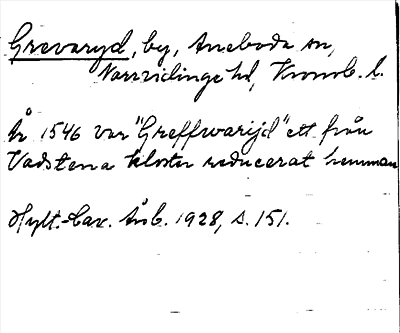 Grevaryd, by, Aneboda sn,
Norrvidinge hd, Kronob. l.
År 1546 var "Greffwarijd" ett från
Vadstena kloster reducerat hemman
Hylt.-Cav. Årb. 1928, s. 151.